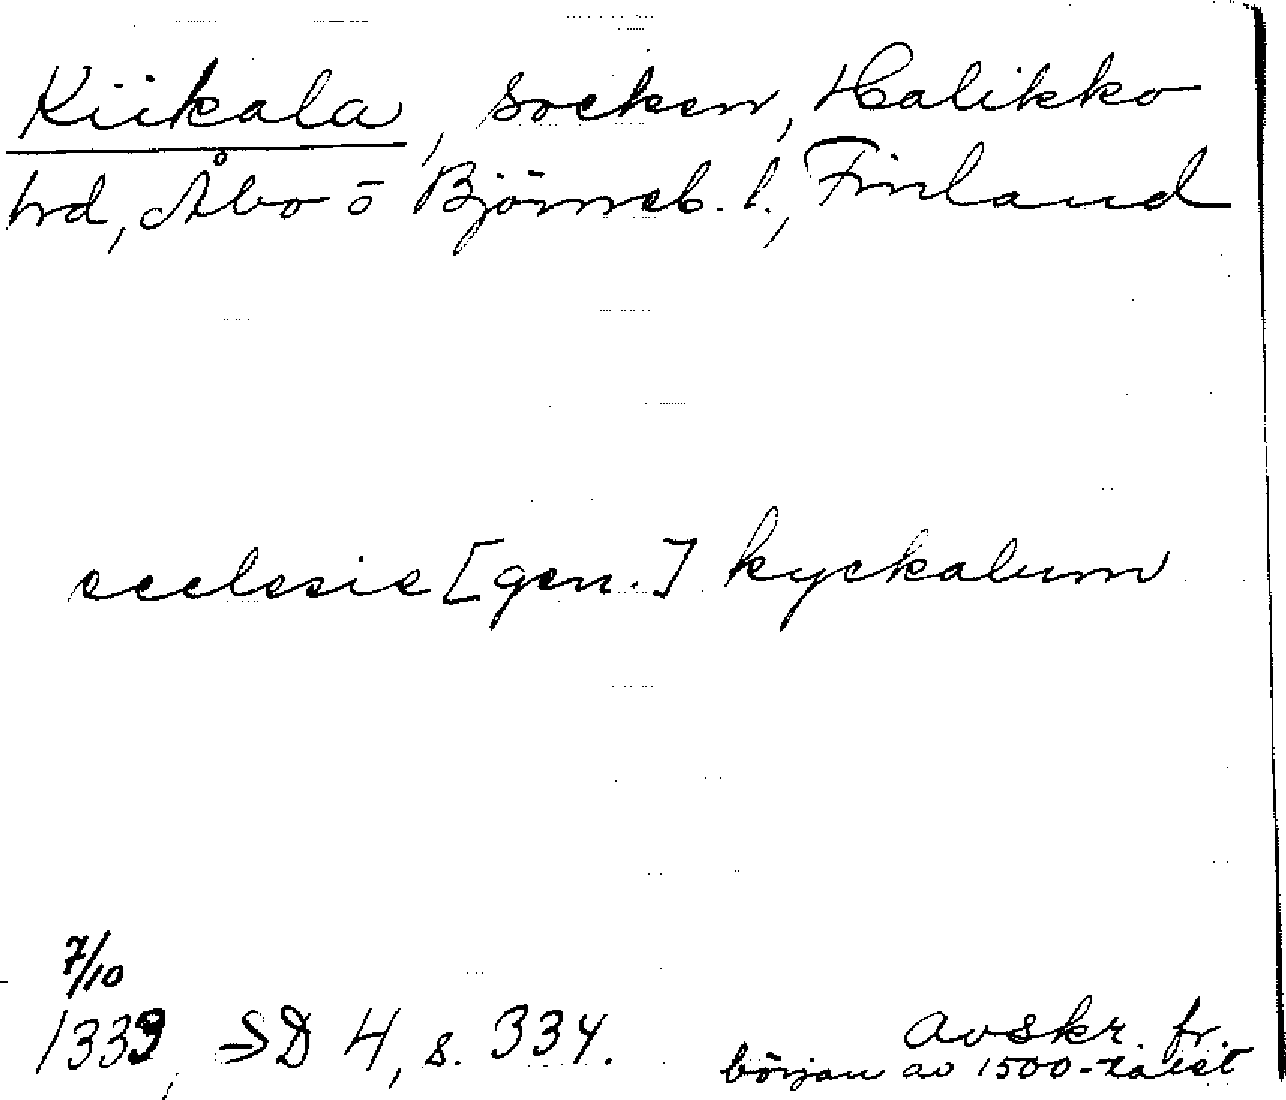 Kiikala, socken, Halikko
hd, Åbo o Björneb. l., Finland
ecclesie [gen.] kyckalum
7/10
1333, SD 4, s. 334.
avskr. fr.
början av 1500-talet